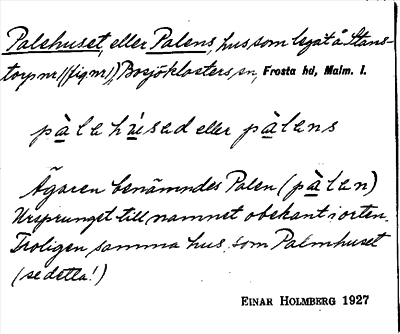 Palehuset, eller Palens, hus som legat å Stans-
torp nr 1 (fig nr 1), Bosjöklosters sn, Frosta hd, Malm. l.
pàlehúsəd eller pàləns
Ägaren benämndes Palen (pàlen)
Ursprunget till namnet obekant i orten.
Troligen samma hus, som Palmhuset
(se detta!)
EINAR HOLMBERG 1927